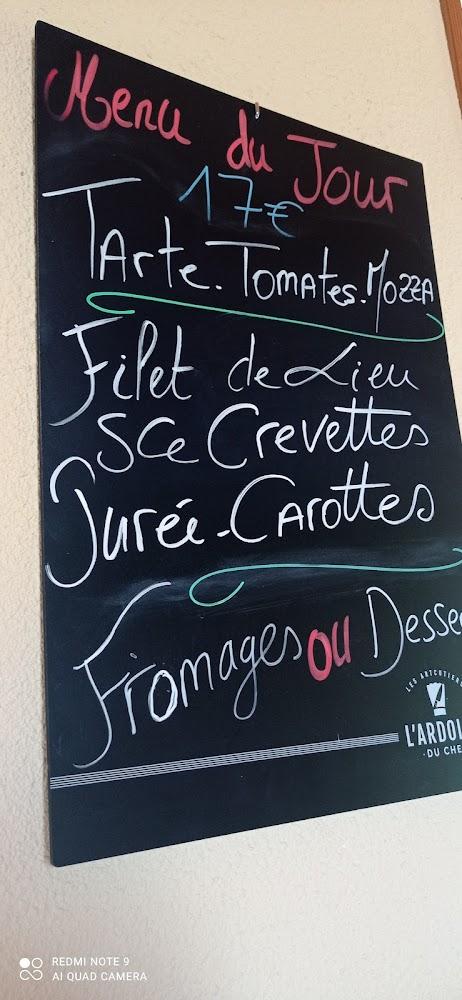 Menu du Jour
17€
Tarte. Tomates. Mozza
Filet de Lieu
Sce Crevettes
Purée-Carottes
Fromages ou Desse
LES ARTCUTIERS
L'ARDOI
·DU CHE
REDMI NOTE 9
AI QUAD CAMERA